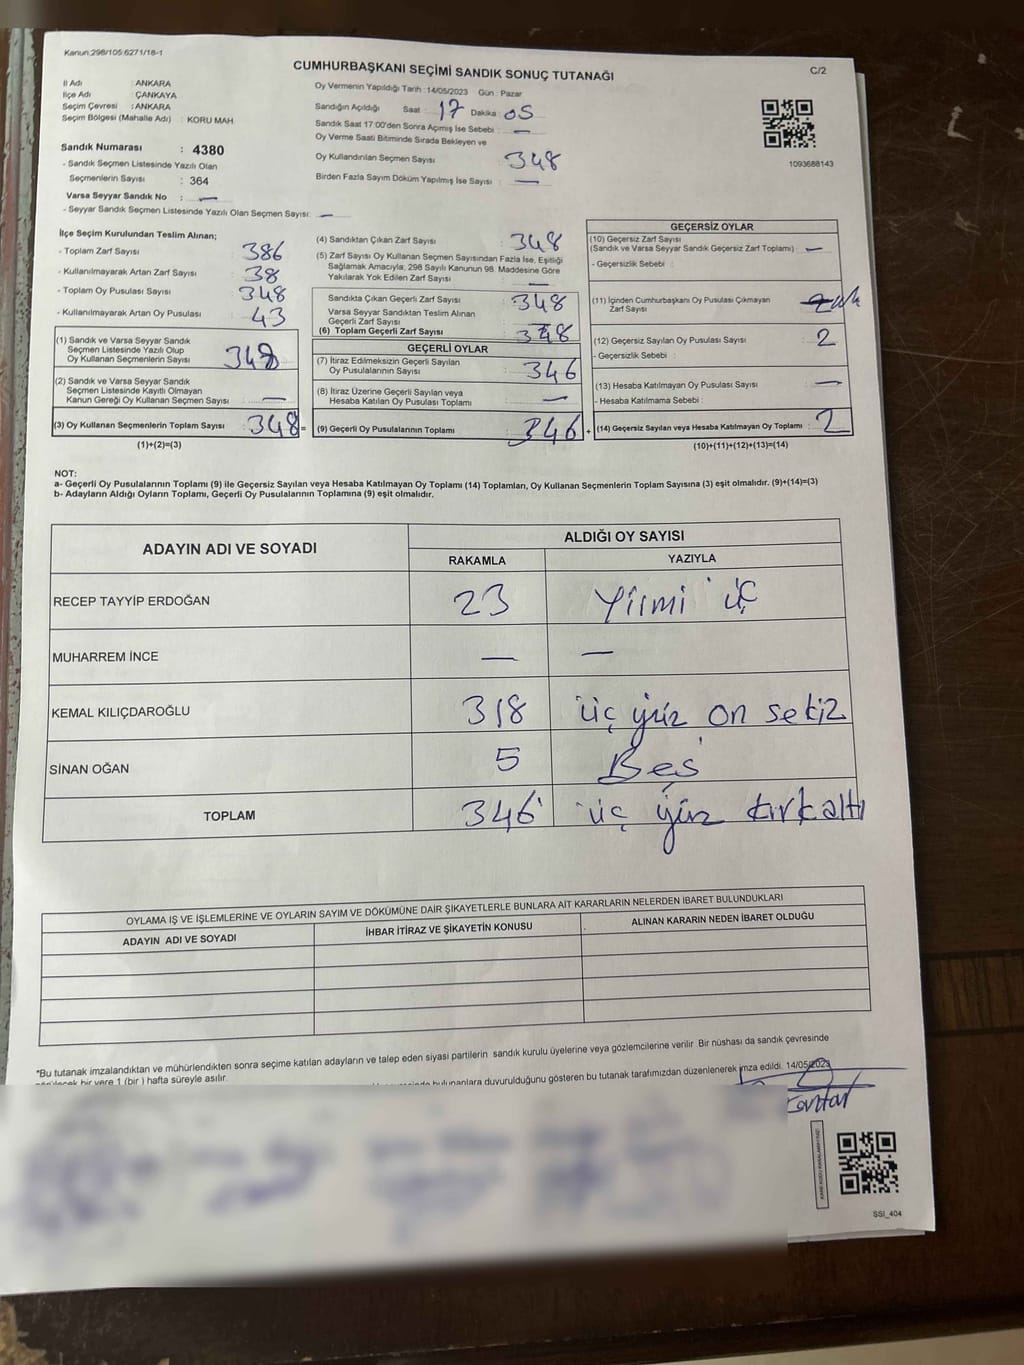 Kanun:298/105 6271/18-1
CUMHURBAŞKANI SEÇİMİ SANDIK SONUÇ TUTANAĞI
C/2
İl Adı : ANKARA
İlçe Adı : ÇANKAYA
Seçim Çevresi : ANKARA
Seçim Bölgesi (Mahalle Adı) : KORU MAH.
Sandık Numarası : 4380
- Sandık Seçmen Listesinde Yazılı Olan
Seçmenlerin Sayısı : 364
Varsa Seyyar Sandık No : —
- Seyyar Sandık Seçmen Listesinde Yazılı Olan Seçmen Sayısı: —
Oy Vermenin Yapıldığı Tarih : 14/05/2023 Gün : Pazar
Sandığın Açıldığı Saat : 17 Dakika : 05
Sandık Saat 17:00'den Sonra Açımış İse Sebebi : —
Oy Verme Saati Bitiminde Sırada Bekleyen ve
Oy Kullandırılan Seçmen Sayısı : 348
Birden Fazla Sayım Döküm Yapılmış İse Sayısı : —
1093688143
İlçe Seçim Kurulundan Teslim Alınan;
- Toplam Zarf Sayısı : 386
- Kullanılmayarak Artan Zarf Sayısı : 38
- Toplam Oy Pusulası Sayısı : 348
- Kullanılmayarak Artan Oy Pusulası : 43
(1) Sandık ve Varsa Seyyar Sandık
Seçmen Listesinde Yazılı Olup
Oy Kullanan Seçmenlerin Sayısı : 348
(2) Sandık ve Varsa Seyyar Sandık
Seçmen Listesinde Kayıtlı Olmayan
Kanun Gereği Oy Kullanan Seçmen Sayısı : —
(3) Oy Kullanan Seçmenlerin Toplam Sayısı : 348 =
(1)+(2)=(3)
(4) Sandıktan Çıkan Zarf Sayısı : 348
(5) Zarf Sayısı Oy Kullanan Seçmen Sayısından Fazla İse, Eşitliği
Sağlamak Amacıyla; 298 Sayılı Kanunun 98. Maddesine Göre
Yakılarak Yok Edilen Zarf Sayısı : —
Sandıkta Çıkan Geçerli Zarf Sayısı : 348
Varsa Seyyar Sandıktan Teslim Alınan
Geçerli Zarf Sayısı
(6) Toplam Geçerli Zarf Sayısı : 348
GEÇERLİ OYLAR
(7) İtiraz Edilmeksizin Geçerli Sayılan
Oy Pusulalarının Sayısı : 346
(8) İtiraz Üzerine Geçerli Sayılan veya
Hesaba Katılan Oy Pusulası Toplamı : —
(9) Geçerli Oy Pusulalarının Toplamı : 346 +
GEÇERSİZ OYLAR
(10) Geçersiz Zarf Sayısı
(Sandık ve Varsa Seyyar Sandık Geçersiz Zarf Toplamı) : —
- Geçersizlik Sebebi :
(11) İçinden Cumhurbaşkanı Oy Pusulası Çıkmayan
Zarf Sayısı
(12) Geçersiz Sayılan Oy Pusulası Sayısı : 2
- Geçersizlik Sebebi :
(13) Hesaba Katılmayan Oy Pusulası Sayısı : —
- Hesaba Katılmama Sebebi :
(14) Geçersiz Sayılan veya Hesaba Katılmayan Oy Toplamı : 2
(10)+(11)+(12)+(13)=(14)
NOT:
a- Geçerli Oy Pusulalarının Toplamı (9) ile Geçersiz Sayılan veya Hesaba Katılmayan Oy Toplamı (14) Toplamları, Oy Kullanan Seçmenlerin Toplam Sayısına (3) eşit olmalıdır. (9)+(14)=(3)
b- Adayların Aldığı Oyların Toplamı, Geçerli Oy Pusulalarının Toplamına (9) eşit olmalıdır.
ADAYIN ADI VE SOYADI
ALDIĞI OY SAYISI
RAKAMLA YAZIYLA
RECEP TAYYİP ERDOĞAN 23 Yirmi üç
MUHARREM İNCE — —
KEMAL KILIÇDAROĞLU 318 üç yüz on sekiz
SİNAN OĞAN 5 Beş
TOPLAM 346 üç yüz kırkaltı
OYLAMA İŞ VE İŞLEMLERİNE VE OYLARIN SAYIM VE DÖKÜMÜNE DAİR ŞİKAYETLERLE BUNLARA AİT KARARLARIN NELERDEN İBARET BULUNDUKLARI
ADAYIN ADI VE SOYADI İHBAR İTİRAZ VE ŞİKAYETİN KONUSU ALINAN KARARIN NEDEN İBARET OLDUĞU
*Bu tutanak imzalandıktan ve mühürlendikten sonra seçime katılan adayların ve talep eden siyasi partilerin sandık kurulu üyelerine veya gözlemcilerine verilir. Bir nüshası da sandık çevresinde
görülecek bir yere 1 (bir ) hafta süreyle asılır.
bulunanlara duyurulduğunu gösteren bu tutanak tarafımızdan düzenlenerek imza edildi. 14/05/2023
SSI_404